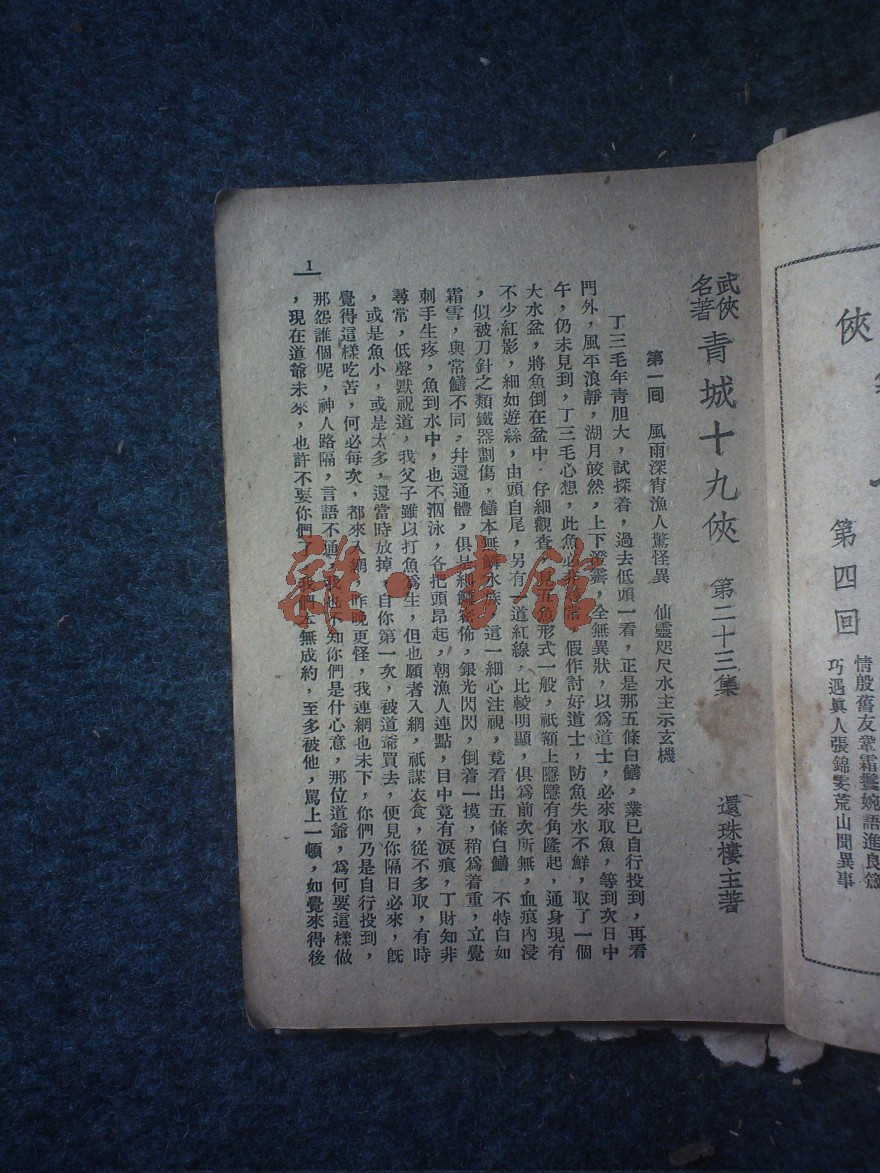 俠
第四回
情殷舊友鞏霜鬟婉語進良箴
巧遇眞人張錦雯荒山聞異事
武俠名著 青城十九俠 第二十三集 還珠樓主著
第一回 風雨深宵漁人驚怪異 仙靈咫尺水主示玄機
丁三毛年青胆大，試探着，過去低頭一看，正是那五條白鱔，業已自行投到，再看
門外，風平浪靜，湖月皎然，上下澄霽，全無異狀，以爲道士，必來取魚，等到次日中
午，仍未見到，丁三毛心想，此魚必非常，假作討好道士，防魚失水不鮮，取了一個
大水盆，將魚倒在盆中，仔細觀查，見五魚形式一般，祇額上隱隱有角隆起，通身現有
不少紅影，細如遊絲，由頭自尾，另有一道紅線，比較明顯，俱爲前次所無，血痕內浸
，似被刀針之類鐵器劃傷，鱔本無鱗水族，這一細心注視，竟看出五條白鱔 不特白如
霜雪，與常鱔不同，幷還通體，俱是細鱗密佈，銀光閃閃，倒着一摸，稍爲着重，立覺
刺手生疼，魚到水中，也不泅泳，各把頭昂起，朝漁人連點，目中竟有淚痕，丁財知非
尋常，低聲默祝道，我父子雖以打魚爲生，但也願者入網，祇謀衣食，從不多取，有時
，或是魚小，或是太多，還當時放掉 自你第一次，被道爺買去，便見你隔日必來，旣
覺得這樣吃苦，何必每次，都來入網 昨晚更怪，我連網也未下，你們乃是自行投到，
那怨誰個呢，神人路隔，言語不通，我也不知你們是什心意，那位道爺，爲何要這樣做
，現在道爺未來，也許不要你們了，我們本無成約，至多被他，罵上一頓，如覺來得後
1
雜·書館